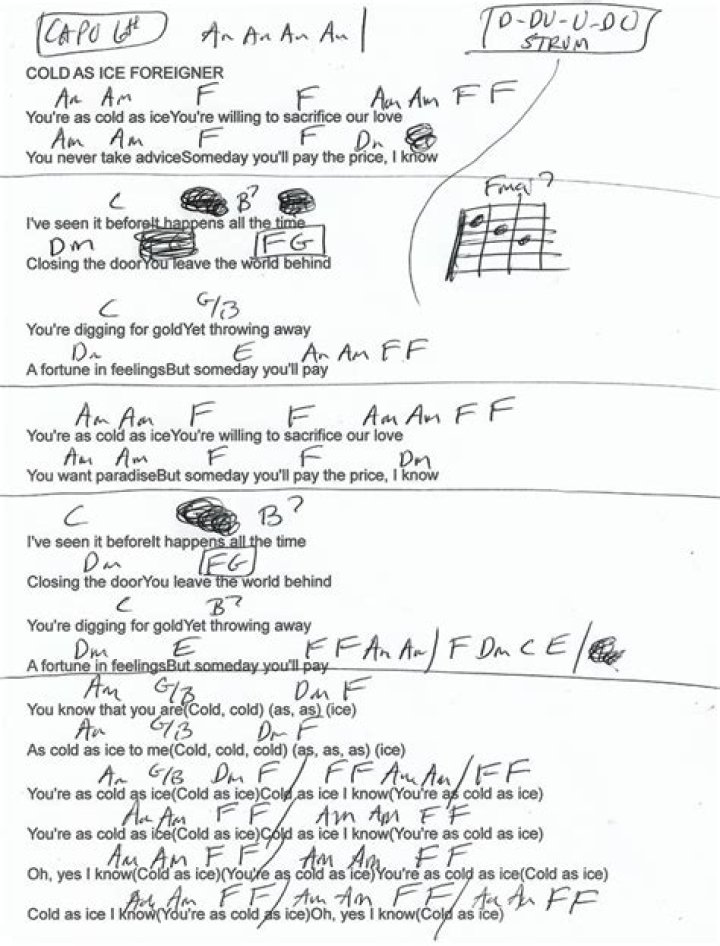 CAPO 6th Am Am Am Am | D-DU-U-DU
STRUM
COLD AS ICE FOREIGNER
Am Am F F Am Am F F
You're as cold as iceYou're willing to sacrifice our love
Am Am F F Dm
You never take adviceSomeday you'll pay the price, I know
C B7 Fmaj7
I've seen it beforeIt happens all the time
Dm FG
Closing the doorYou leave the world behind
C G/B
You're digging for goldYet throwing away
Dm E Am Am F F
A fortune in feelingsBut someday you'll pay
Am Am F F Am Am F F
You're as cold as iceYou're willing to sacrifice our love
Am Am F F Dm
You want paradiseBut someday you'll pay the price, I know
C B7
I've seen it beforeIt happens all the time
Dm FG
Closing the doorYou leave the world behind
C B7
You're digging for goldYet throwing away
Dm E F F Am Am / F Dm C E /
A fortune in feelingsBut someday you'll pay
Am G/B Dm F
You know that you are(Cold, cold) (as, as) (ice)
Am G/B Dm F
As cold as ice to me(Cold, cold, cold) (as, as, as) (ice)
Am G/B Dm F / F F Am Am / F F
You're as cold as ice(Cold as ice)Cold as ice I know(You're as cold as ice)
Am Am F F / Am Am F F
You're as cold as ice(Cold as ice)Cold as ice I know(You're as cold as ice)
Am Am F F / Am Am F F
Oh, yes I know(Cold as ice)(You're as cold as ice)You're as cold as ice(Cold as ice)
Am Am F F / Am Am F F / Am Am F F
Cold as ice I know(You're as cold as ice)Oh, yes I know(Cold as ice)